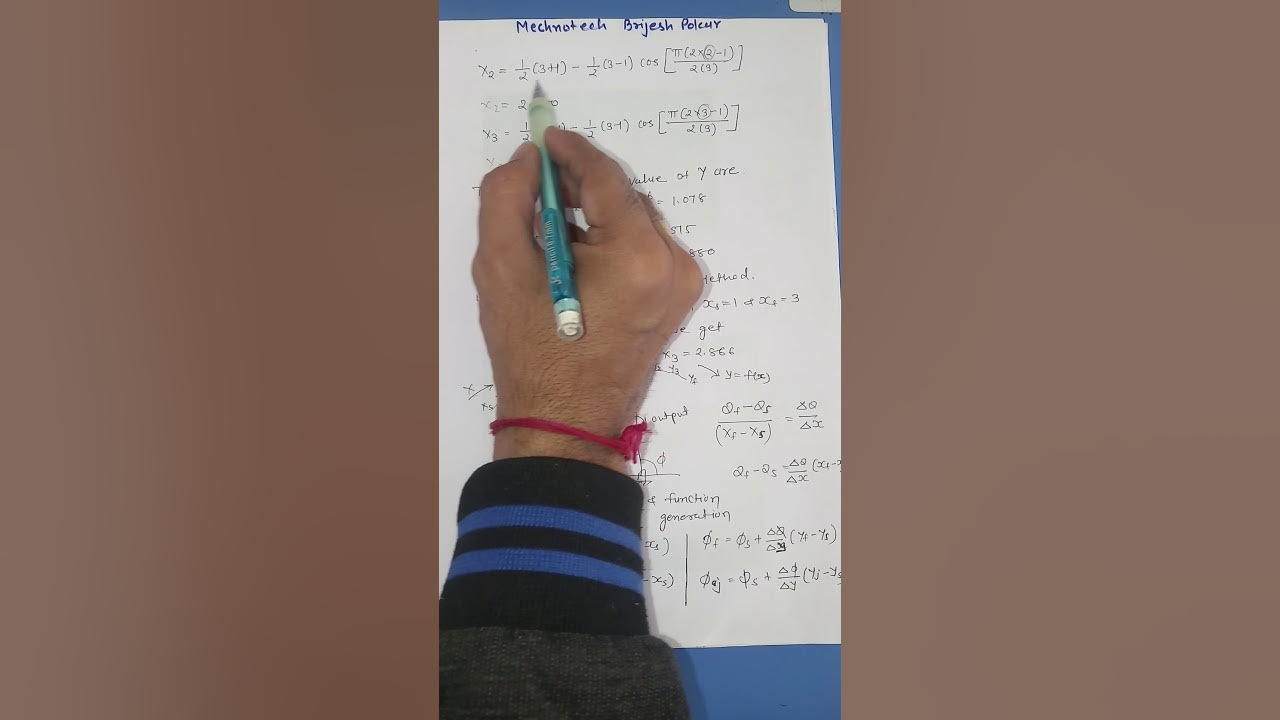 Mechnotech Brijesh Polkar
x₂ = 1/2 (3+1) - 1/2 (3-1) cos [π(2×2-1)/2(3)]
x₂ = 2
x₃ = 1/2 - 1/2 (3-1) cos [π(2×3-1)/2(3)]
value of Y are
= 1.078
515
880
method.
xₛ=1 & x_f = 3
we get
x₃ = 2.866
y₃ y_f y=f(x)
x
xₛ
output θ_f-θₛ/(x_f-xₛ) = Δθ/Δx
φ
θ_f-θₛ = Δθ/Δx (x_f-x
& function
generation
xₛ) φ_f = φₛ + Δφ/Δy (y_f-yₛ)
-xₛ) φ_j = φₛ + Δφ/Δy (y_j-yₛ